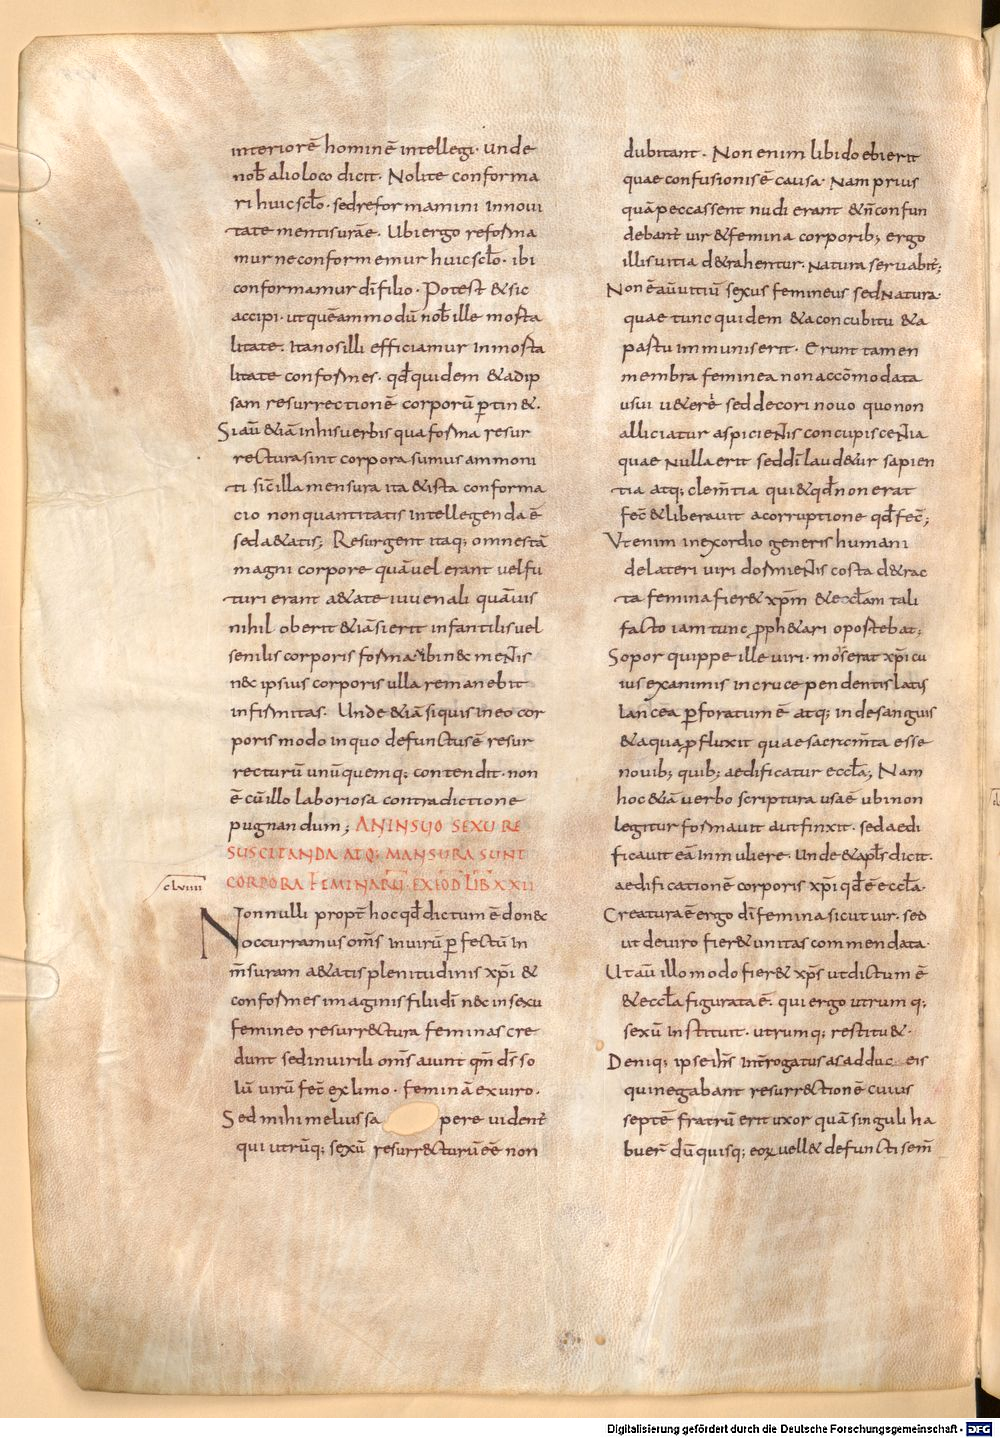 interiorē hominē intellegi. unde
nob̄ alio loco dicit. Nolite conforma
ri huic sc̄lo. sed reformamini innoui
tate mentis urāe. Ubi ergo reforma
mur ne conformemur huic sc̄lo. ibi
conformamur dī filio. Potest & sic
accipi. ut quēammodū nob̄ ille morta
litate. Ita nos illi efficiamur inmorta
litate conformes. qđ quidem & adip
sam resurrectionē corporū ꝑtin&.
Si aū &iā in his uerbis qua forma resur
rectura sint corpora sumus ammoni
ti sic̄ illa mensura ita & ista conforma
cio non quantitatis intellegenda ē
sed a&atis; Resurgent itaq; omnes tā
magni corpore quā uel erant uel fu
turi erant a&ate iuuenali quāuis
nihil oberit &iā si erit infantilis uel
senilis corporis forma ubi nec mentis
nec ipsius corporis ulla remanebit
infirmitas. Unde &iā si quis in eo cor
poris modo in quo defunctus ē resur
recturū unūquemq; contendit. non
ē cū illo laboriosa contradictione
pugnandum; AN IN SUO SEXU RE
SUSCITANDA ATQ; MANSURA SUNT
CORPORA FEMINARŪ. EX EOD̄ LIB̄ XXII
clviiii
Nonnulli propt̄ hoc qđ dictum ē donec
occurramus om̄s in uirū ꝑfectū in
m̄suram a&atis plenitudinis xp̄i &
conformes imaginis filii dī nec in sexu
femineo resurr&tura feminas cre
dunt sed in uirili om̄s aiunt qm̄ d̄s so
lū uirū fec̄ ex limo. feminā ex uiro.
Sed mihi melius sa pere uident̄
qui utrūq; sexū resurrecturū eē non
dubitant. Non enim libido ebi erit
quae confusionis ē causa. Nam prius
quā peccassent nudi erant & n̄ confun
debant̄ uir & femina corporib; ergo
illis uitia d&rahentur. Natura seruabit̄;
Non ē aū uitiū sexus femineus sed Natura.
quae tunc quidem & a concubitu & a
partu immunis erit. Erunt tamen
membra feminea non accōmodata
usui u&eri sed decori nouo quo non
alliciatur aspicientis concupiscentia
quae Nulla erit sed dī laud&ur sapien
tia atq; clem̄tia qui & qđ non erat
fec̄ & liberauit a corruptione qđ fec̄;
Ut enim in exordio generis humani
de lateri uiri dormientis costa d&rac
ta femina fier& xp̄m & eccl̄am tali
facto iam tunc ꝓph&ari oportebat;
Sopor quippe ille uiri. mors erat xp̄i cu
ius exanimis in cruce pendentis latus
lancea ꝑforatum ē atq; inde sanguis
& aqua ꝓfluxit quae sacram̄ta esse
nouib; quib; aedificatur eccl̄a; Nam
hoc &iā uerbo scriptura usa ē ubi non
legitur formauit aut finxit. sed aedi
ficauit eā in muliere. Unde & apl̄s dicit.
aedificationē corporis xp̄i qđ ē eccl̄a.
Creatura ē ergo dī femina sicut uir. sed
ut de uiro fier& unitas commendata.
Ut aū illo modo fier& xp̄s ut dictum ē
& eccl̄a figurata ē. qui ergo utrumq;
sexū instituit. utrumq; restitu&.
Deniq; ipse ih̄s int̄rogatus a sadduc eis
qui negabant resurr&tionē cuius
septē fratrū erit uxor quā singuli ha
buer̄ dū quisq; eoꝝ uell& defuncti sem̄
Digitalisierung gefördert durch die Deutsche Forschungsgemeinschaft - DFG